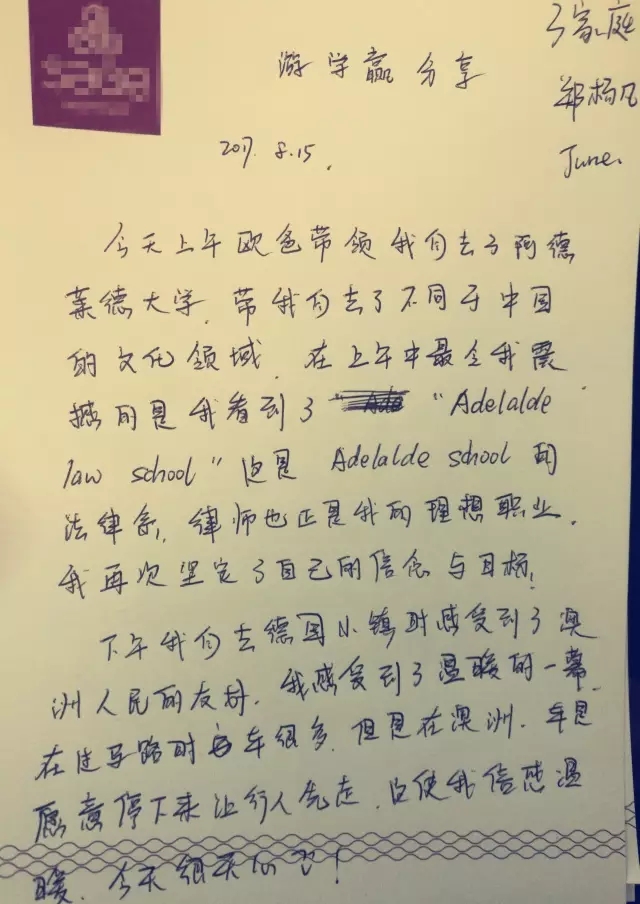 游学赢分享
3家庭
郑杨凡
June.
2017.8.15.
今天上午欧色带领我们去了阿德
莱德大学,带我们去了不同于中国
的文化领域.在上午中最令我震
撼的是我看到了"Adelalde
law school"这是 Adelalde school 的
法律系,律师也正是我的理想职业.
我再次坚定了自己的信念与目标!
下午我们去德国小镇时感受到了澳
洲人民的友好.我感受到了温暖的一幕.
在过马路时车很多,但是在澳洲.车是
愿意停下来让行人先走,这使我倍感温
暖.今天很开心!